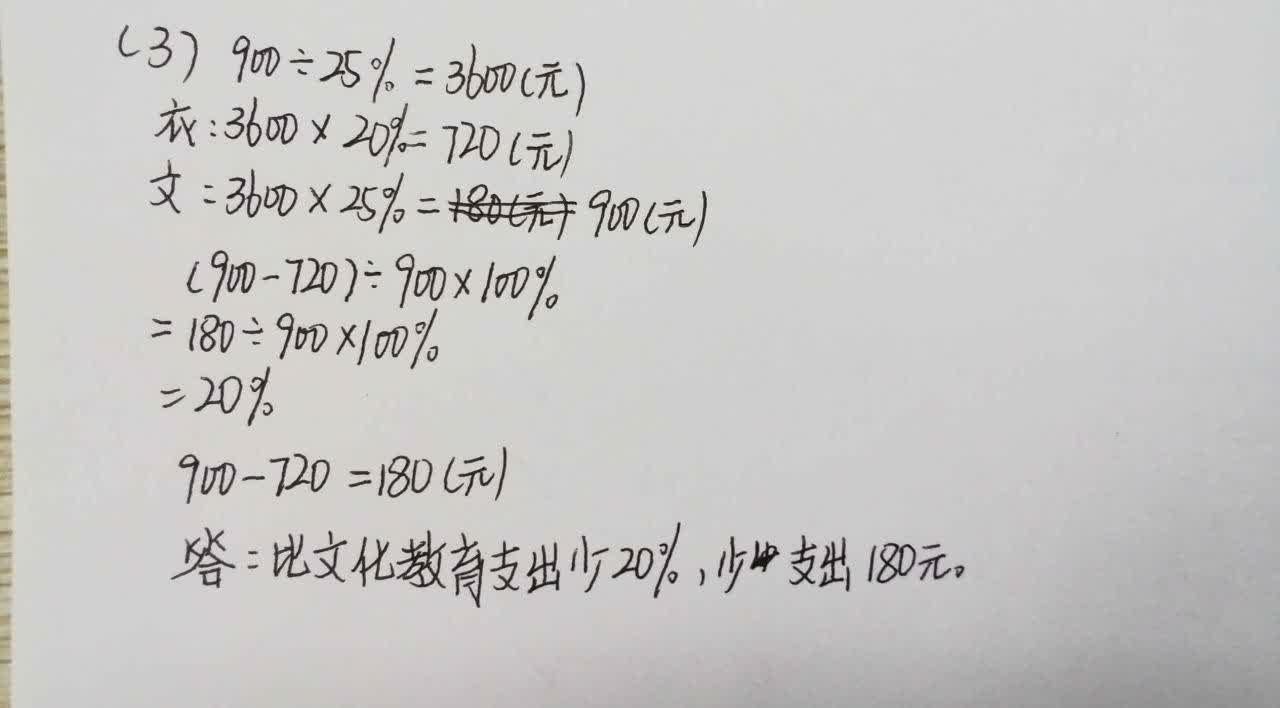 (3) 900÷25%=3600(元)
衣:3600×20%=720(元)
文:3600×25%=180(元) 900(元)
(900-720)÷900×100%
=180÷900×100%
=20%
900-720=180(元)
答:比文化教育支出少20%,少支出180元。